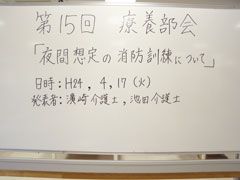 第15回 療養部会
「夜間想定の消防訓練について」
日時：H24，4，17（火）
発表者：濱崎介護士，池田介護士